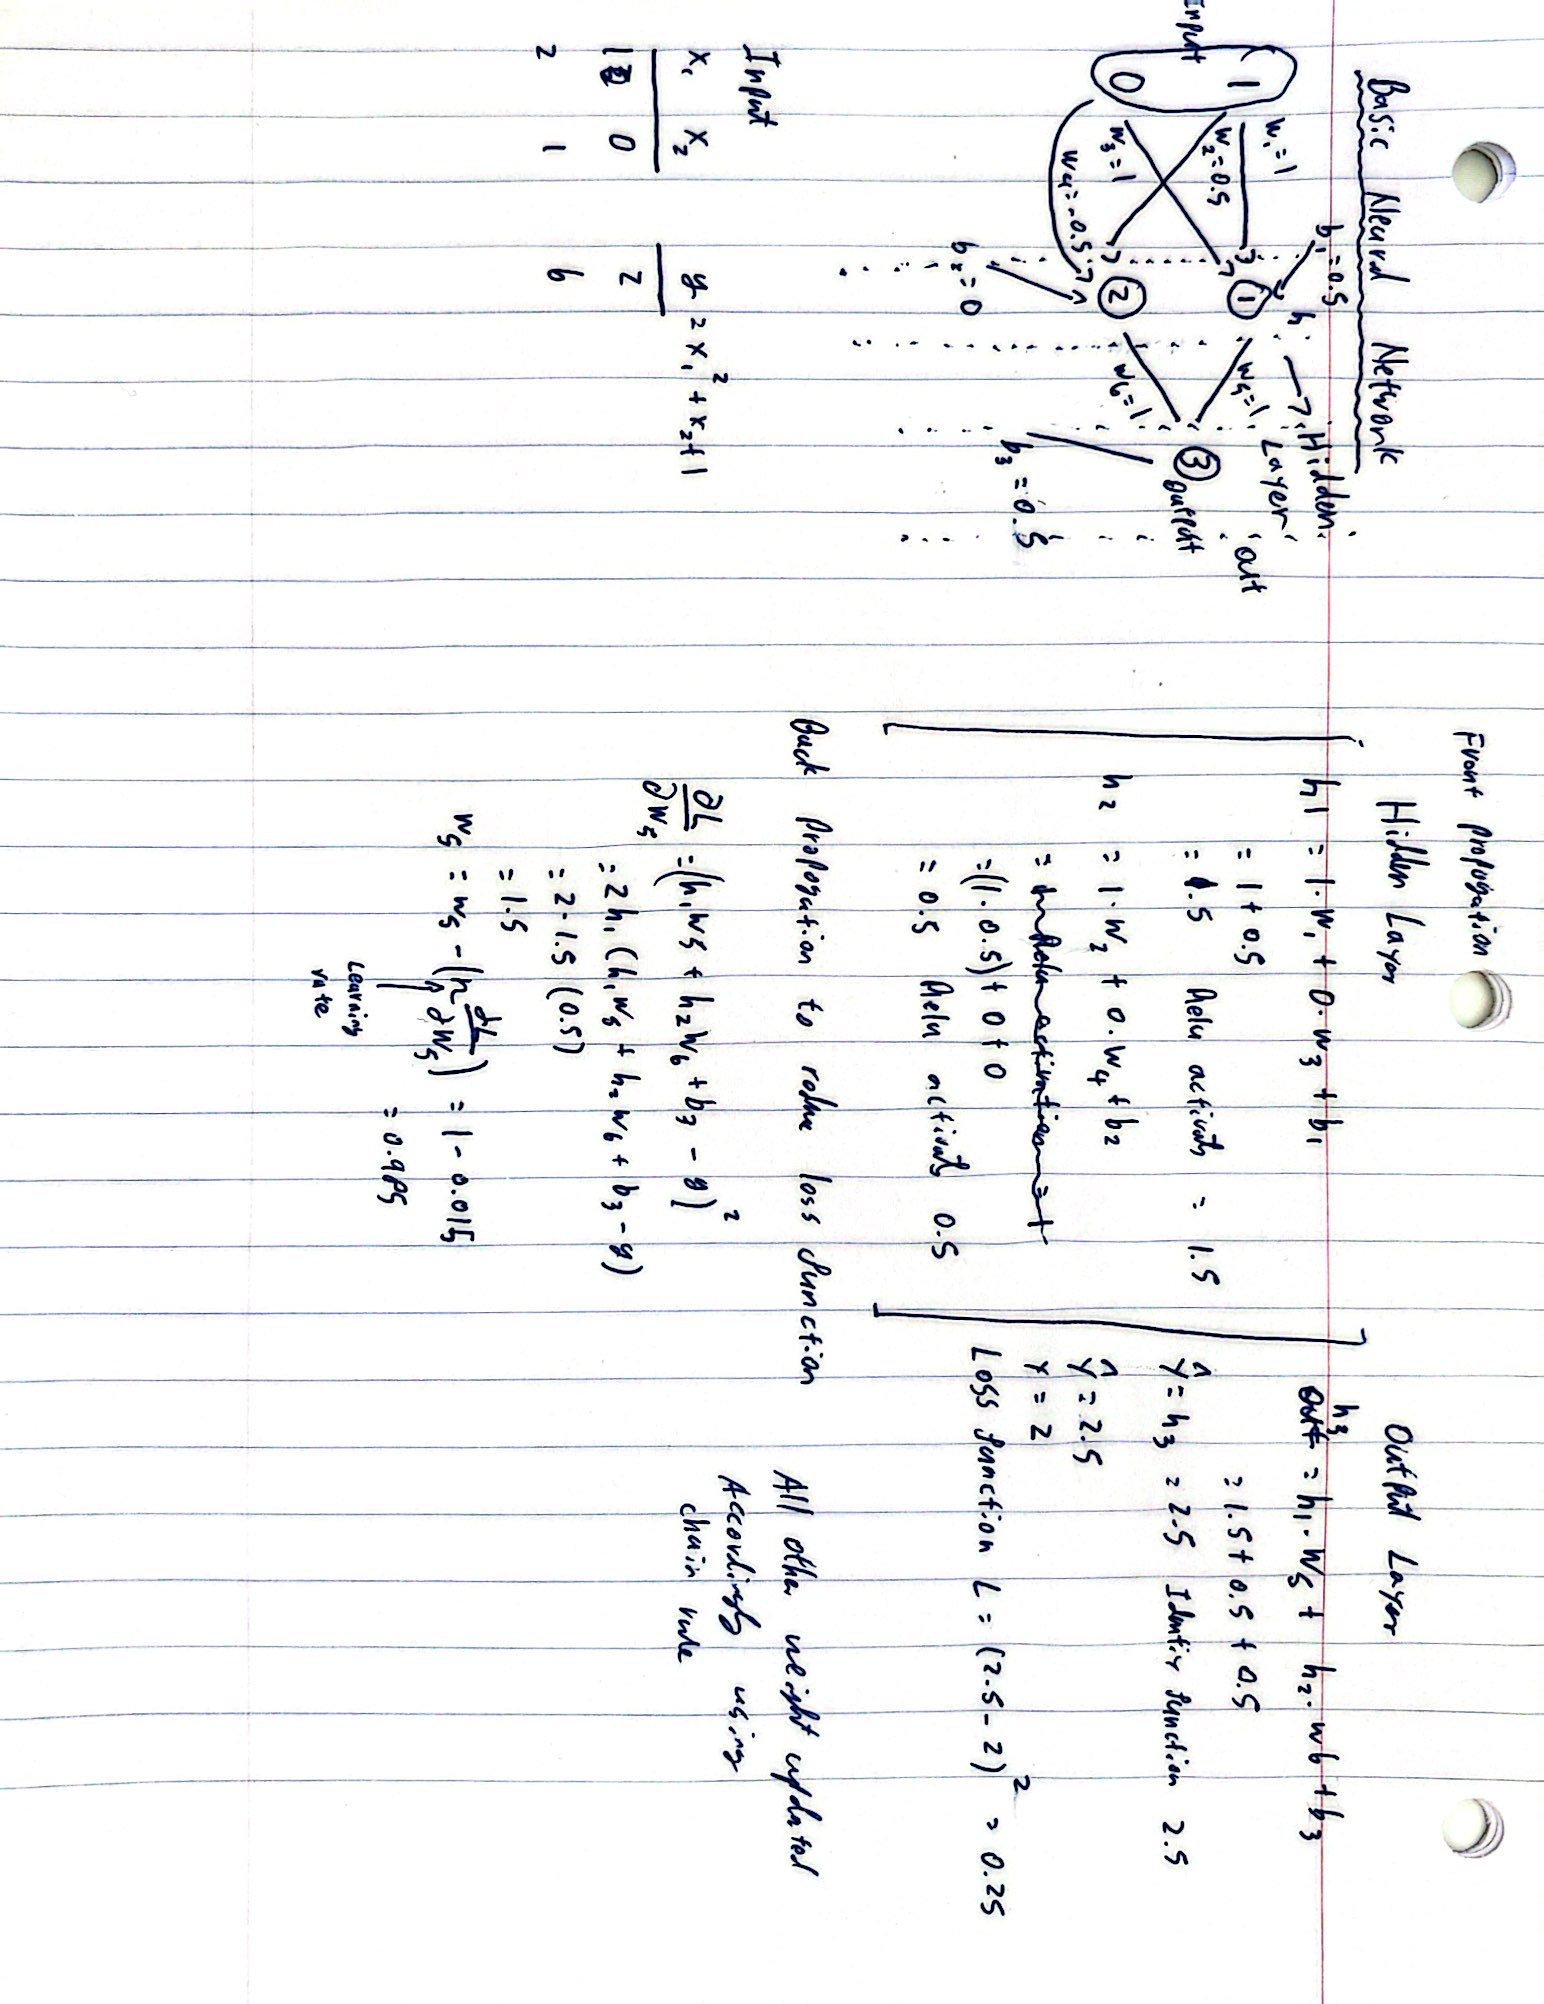 Basic Neural Network
Input
1
0
w₁=1
w₂=0.5
w₃=1
w₄=-0.5
b₁=0.5
b₂=0
h
①
②
Hidden
Layer
w₅=1
w₆=1
③
b₃=0.5
out
Input
x₁ x₂ y = x₁² + x₂+1
1 0 2
2 1 6
Front propogation
Hidden Layer
h1 = 1·w₁ + 0·w₃ + b₁
= 1+0.5
= 1.5 Relu activats = 1.5
h₂ = 1·w₂ + 0·w₄ + b₂
=(1·0.5)+0+0
= 0.5 Relu activats 0.5
Output Layer
h₃
out = h₁·w₅ + h₂·w6 + b₃
= 1.5+0.5+0.5
ŷ = h₃ = 2.5 Identiy function 2.5
ŷ = 2.5
Y = 2
Loss function L = (2.5-2)² = 0.25
Back Propogation to reduce loss function
∂L/∂w₅ =(h₁w₅ + h₂w₆ + b₃ - y)²
= 2h₁(h₁w₅ + h₂w₆ + b₃ - y)
= 2·1.5(0.5)
= 1.5
w₅ = w₅ - (η ∂L/∂w₅) = 1-0.015
= 0.985
Learning
rate
All other weight updated
Accordingly using
chain rule